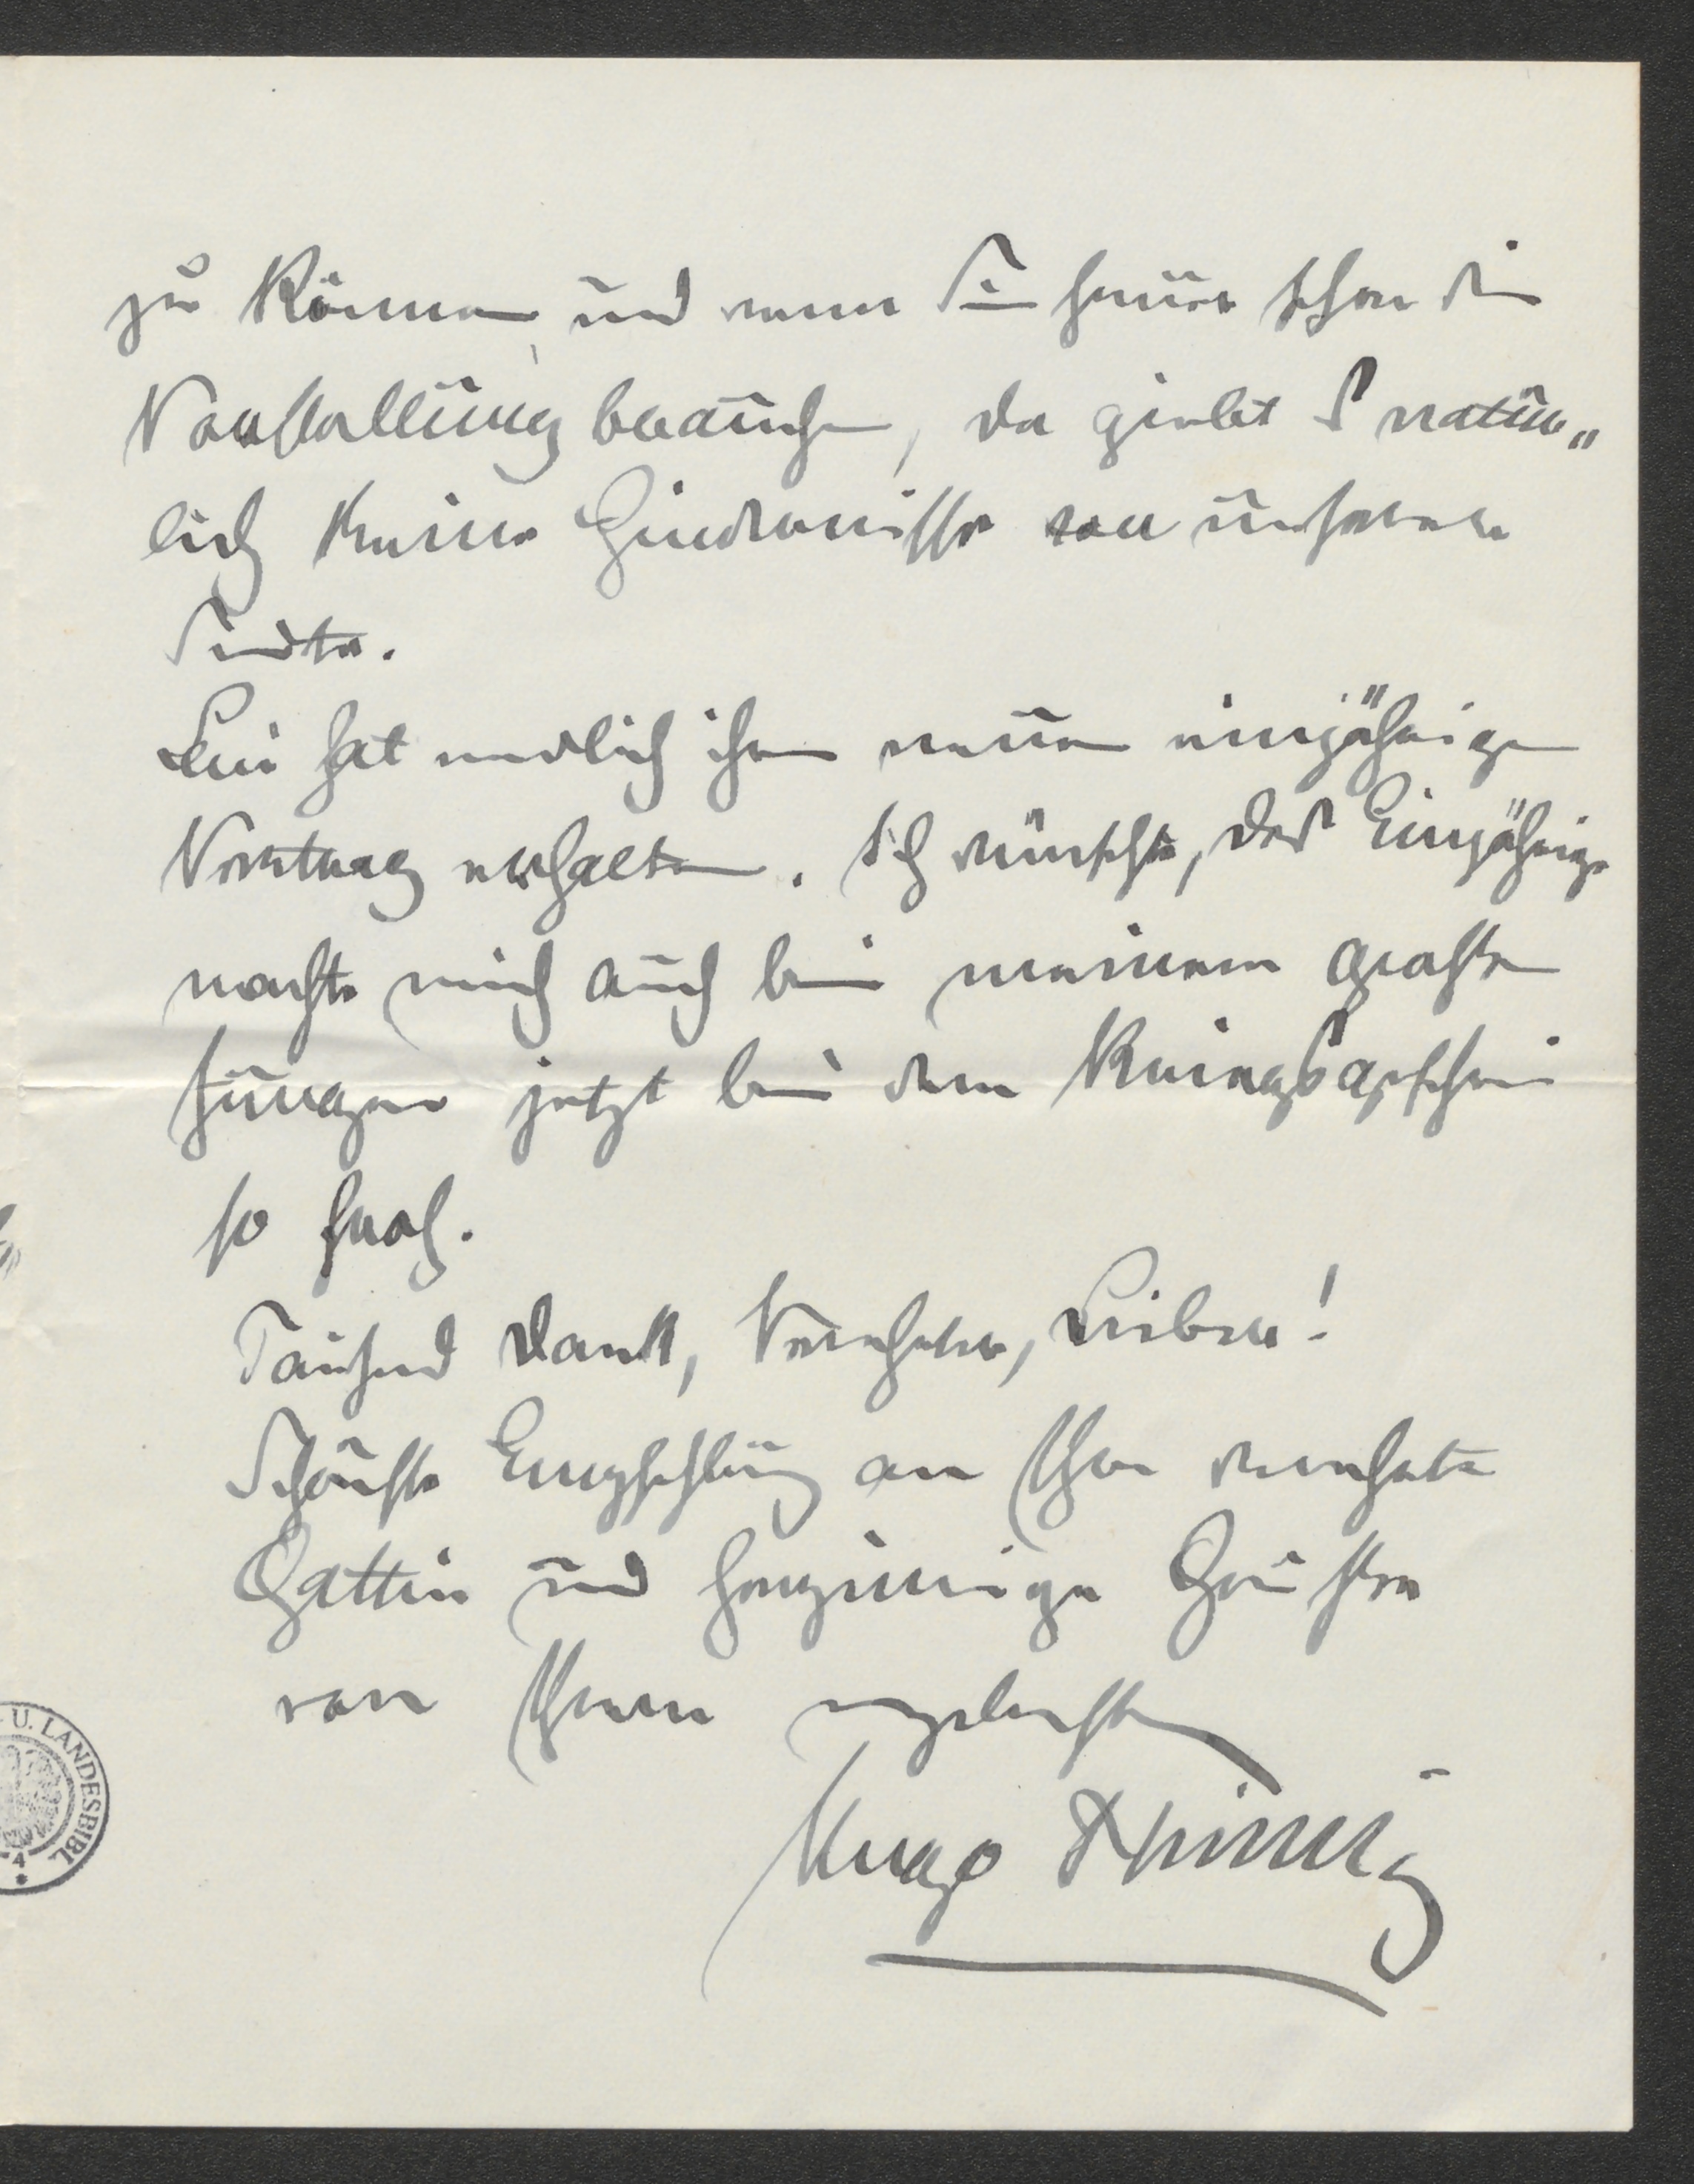 zu können, und wenn Sie heuer schon die
Vorstellung brauchen, da giebt's natür„
lich keine Hindernisse von unserer
Seite.
hat endlich ihren neuen einjährigen
Vertrag erhalten. Ich wünschte, das Einjährige
machte mich auch bei meinem großen
Jungen jetzt bei dem
so froh.
Tausend Dank, Verehrter, Lieber!
Schönste Empfehlung an Ihre verehrte
Gattin und herzinnige Grüße
von Ihrem ergebensten
Hugo Thimig
U. LANDESBIBL.
4